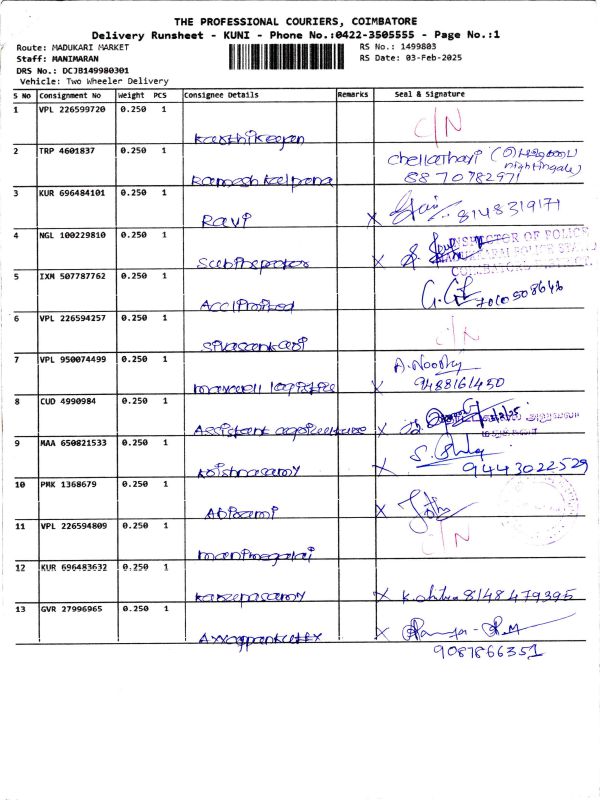 THE PROFESSIONAL COURIERS, COIMBATORE
Delivery Runsheet - KUNI - Phone No.:0422-3505555 - Page No.:1
Route: MADUKARI MARKET RS No.: 1499803
Staff: MANIMARAN RS Date: 03-Feb-2025
DRS No.: DCJB149980301
Vehicle: Two Wheeler Delivery
S No Consignment No Weight PCS Consignee Details Remarks Seal & Signature
1 VPL 226599720 0.250 1 Karthikeyan C/N
2 TRP 4601837 0.250 1 Ramesh Kalpana Chellathayi
nightingale)
8870782971
3 KUR 696484101 0.250 1 Ravi X 8148319171
4 NGL 100229810 0.250 1 Sub Inspector X
INSPECTOR OF POLICE
5 IXM 507787762 0.250 1 7010508646
6 VPL 226594257 0.250 1 Sivasankari C/N
7 VPL 950074499 0.250 1 X 9488161450
8 CUD 4990984 0.250 1 Assistant agriculture X
9 MAA 650821533 0.250 1 Krishnasamy X 9443022529
10 PMX 1368679 0.250 1 Abirami X
11 VPL 226594809 0.250 1 Manimegalai C/N
12 KUR 696483632 0.250 1 Karuppasamy X 8148479395
13 GVR 27996965 0.250 1 X
9087866351